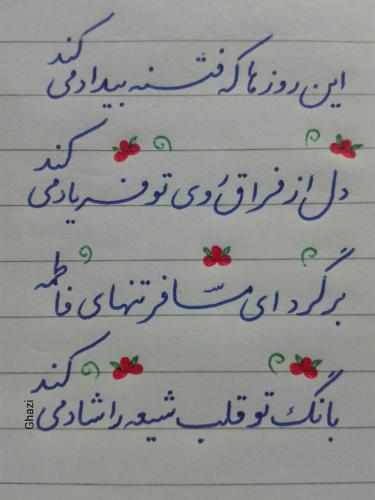 این روزها که فتنه بیداد می کند
دل از فراق رُوی تو فریاد می کند
برگرد ای مسافر تنهای فاطمه
بانگ تو قلب شیعه را شاد می کند
Ghazi